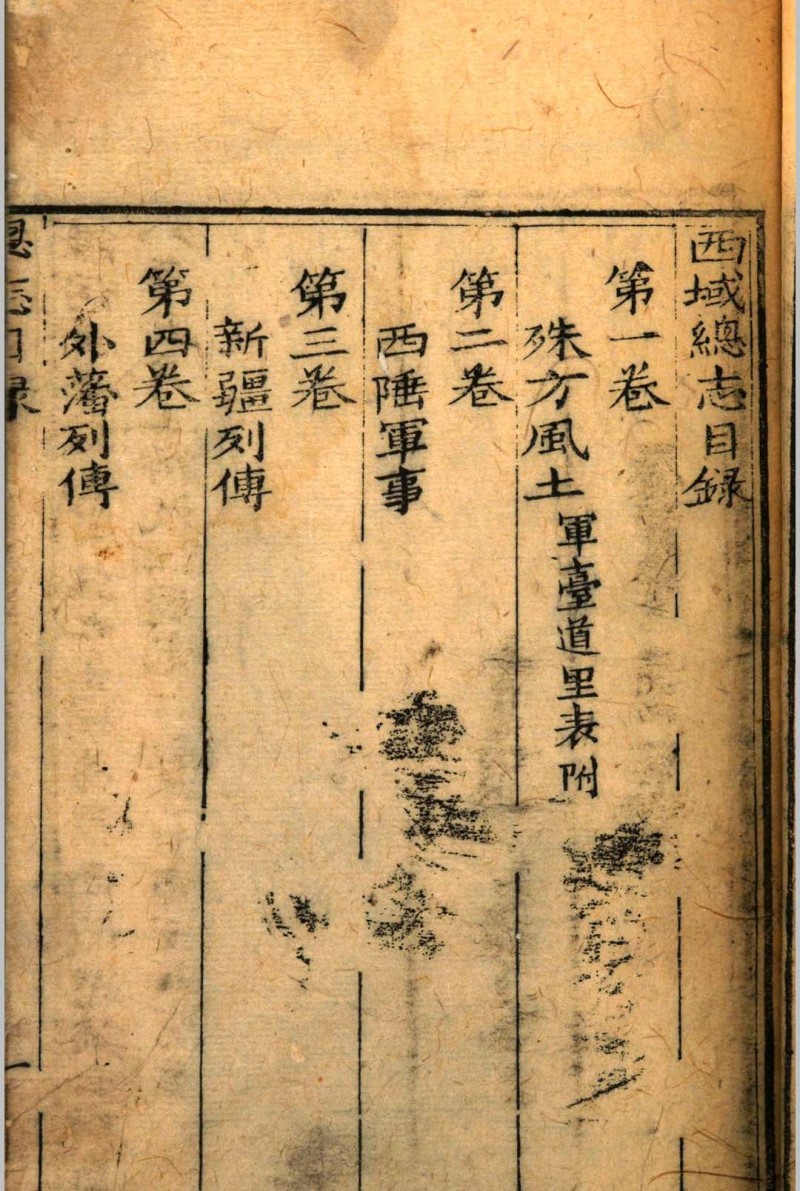 西域總志目錄
第一卷
殊方風土 軍臺道里表附
第二卷
西陲軍事
第三卷
新疆列傳
第四卷
外藩列傳
總志目錄 一